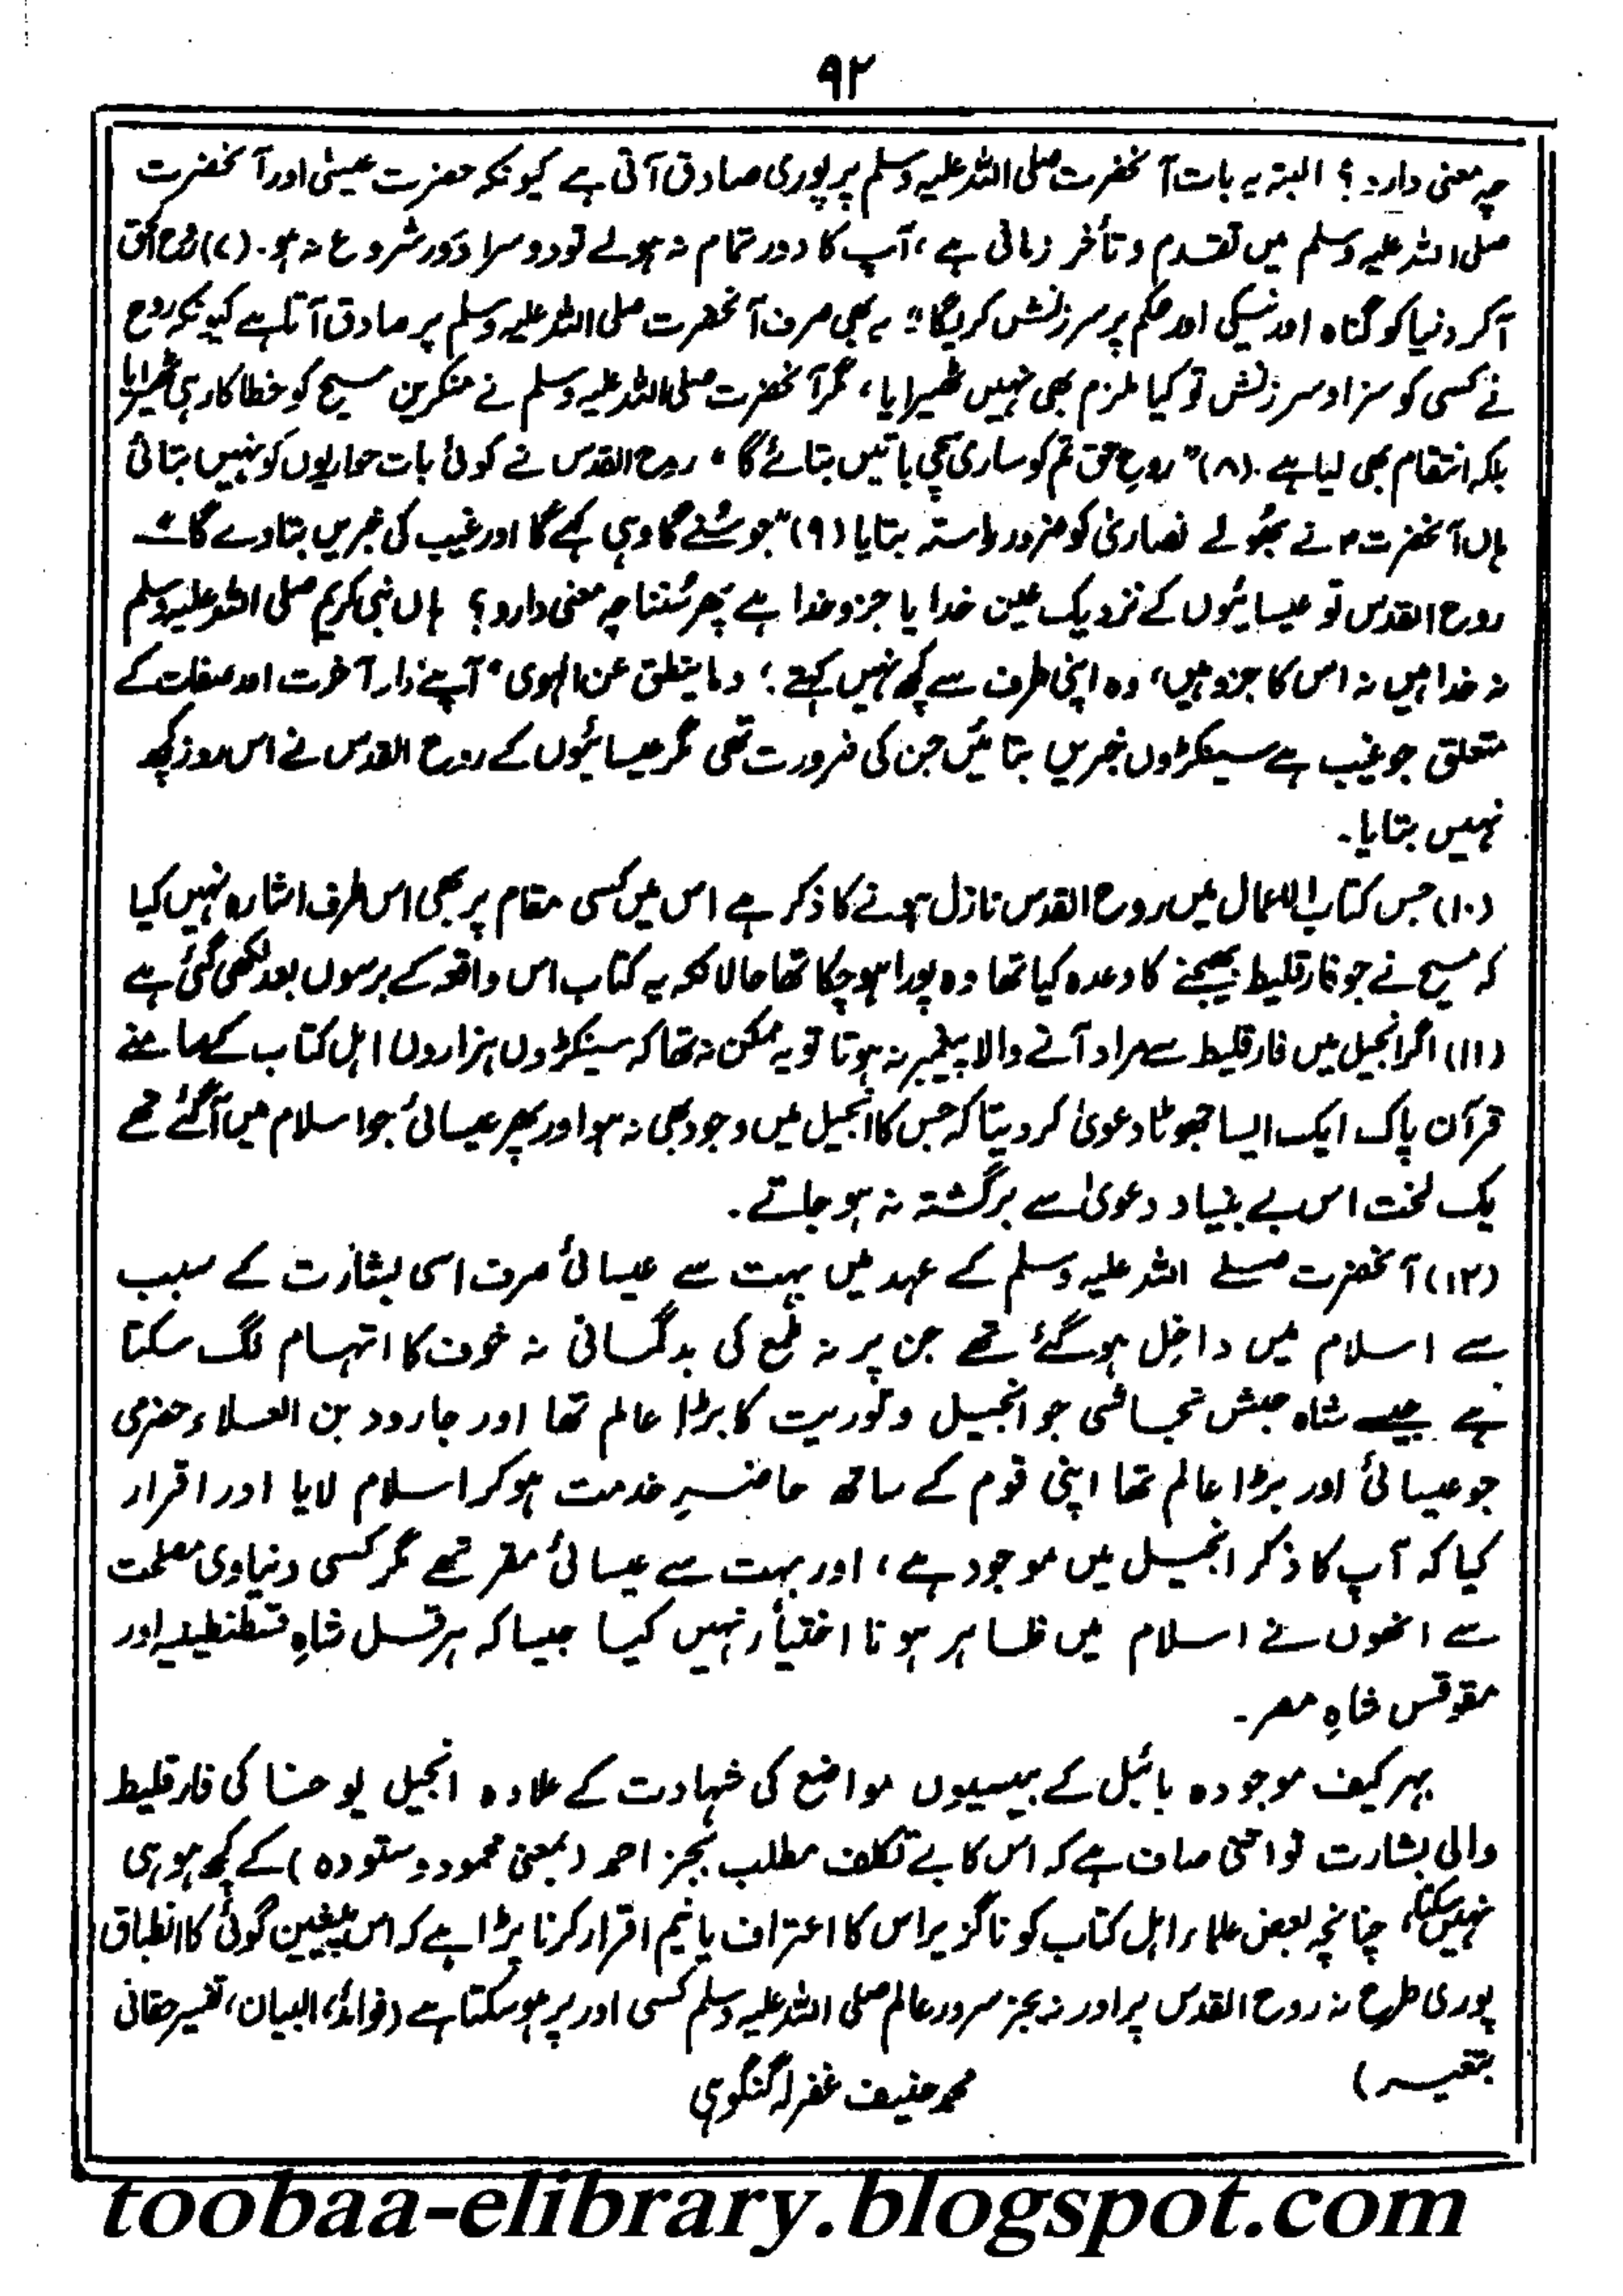 ۹۲
چہ معنی دارد؟ البتہ یہ بات آنحضرت صلی اللہ علیہ وسلم پر پوری صادق آتی ہے کیونکہ حضرت عیسیٰ اور آنحضرت
صلی اللہ علیہ وسلم میں تقدم و تأخر زمانی ہے، آپ کا دور تمام نہ ہولے تو دوسرا دَور شروع نہ ہو۔ (۷) روح الحق
آکر دنیا کو گناہ اور نیکی اور حکم پر سرزنش کریگا" یہ بھی صرف آنحضرت صلی اللہ علیہ وسلم پر صادق آتا ہے کیونکہ روح
نے کسی کو سزا و سرزنش تو کیا ملزم بھی نہیں ٹھیرایا، مگر آنحضرت صلی اللہ علیہ وسلم نے منکرین مسیح کو خطا کار ہی ٹھیرایا
بلکہ انتقام بھی لیا ہے۔ (۸) "روحِ حق تم کو ساری سچی باتیں بتائے گا" روح القدس نے کوئی بات حواریوں کو نہیں بتائی
ہاں آنحضرت ؐ نے بھُولے نصاریٰ کو ضرور راستہ بتایا (۹) "جو سُنے گا وہی کہے گا اور غیب کی خبریں بتا دے گا"
روح القدس تو عیسائیوں کے نزدیک عین خدا یا جزو خدا ہے پھر سُننا چہ معنی دارد؟ ہاں نبی کریم صلی اللہ علیہ وسلم
نہ خدا ہیں نہ اس کا جزو ہیں، وہ اپنی طرف سے کچھ نہیں کہتے؛ وما ینطق عن الہوی" آپ نے دار آخرت اور صفات کے
متعلق جو غیب ہے سینکڑوں خبریں بتائیں جن کی ضرورت تھی مگر عیسائیوں کے روح القدس نے اس روز کچھ
نہیں بتایا۔
(۱۰) جس کتاب الاعمال میں روح القدس نازل ہونے کا ذکر ہے اس میں کسی مقام پر بھی اس طرف اشارہ نہیں کیا
کہ مسیح نے جو فارقلیط بھیجنے کا وعدہ کیا تھا وہ پورا ہو چکا تھا حالانکہ یہ کتاب اس واقعہ کے برسوں بعد لکھی گئی ہے
(۱۱) اگر انجیل میں فارقلیط سے مراد آنے والا پیغمبر نہ ہوتا تو یہ ممکن نہ تھا کہ سینکڑوں ہزاروں اہل کتاب کے سامنے
قرآن پاک ایک ایسا جھوٹا دعویٰ کر دیتا کہ جس کا انجیل میں وجود بھی نہ ہو اور پھر عیسائی جو اسلام میں آگئے تھے
یک لخت اس بے بنیاد دعویٰ سے برگشتہ نہ ہو جاتے۔
(۱۲) آنحضرت صلے اللہ علیہ وسلم کے عہد میں بہت سے عیسائی صرف اسی بشارت کے سبب
سے اسلام میں داخل ہو گئے تھے جن پر نہ طمع کی بدگمانی نہ خوف کا اتہام لگ سکتا
ہے جیسے شاہ حبش نجاشی جو انجیل و توریت کا بڑا عالم تھا اور جارود بن العلاء حضرمی
جو عیسائی اور بڑا عالم تھا اپنی قوم کے ساتھ حاضرِ خدمت ہو کر اسلام لایا اور اقرار
کیا کہ آپ کا ذکر انجیل میں موجود ہے، اور بہت سے عیسائی مقر تھے مگر کسی دنیاوی مصلحت
سے انھوں نے اسلام میں ظاہر ہونا اختیار نہیں کیا جیسا کہ ہرقل شاہِ قسطنطینیہ اور
مقوقس شاہِ مصر۔
بہر کیف موجودہ بائبل کے بیسیوں مواضع کی شہادت کے علاوہ انجیل یوحنا کی فارقلیط
والی بشارت تو اتنی صاف ہے کہ اس کا بے تکلف مطلب بجز احمد (بمعنی محمود و ستودہ) کے کچھ ہو ہی
نہیں سکتا، چنانچہ بعض علماء اہل کتاب کو ناگزیر اس کا اعتراف یا نیم اقرار کرنا پڑا ہے کہ اس پیشین گوئی کا انطباق
پوری طرح نہ روح القدس پر اور نہ بجز سرور عالم صلی اللہ علیہ وسلم کسی اور پر ہو سکتا ہے (فوائد، البیان، تفسیر حقانی
بتغیر)
محمد حنیف غفرلہ گنگوہی
toobaa-elibrary.blogspot.com